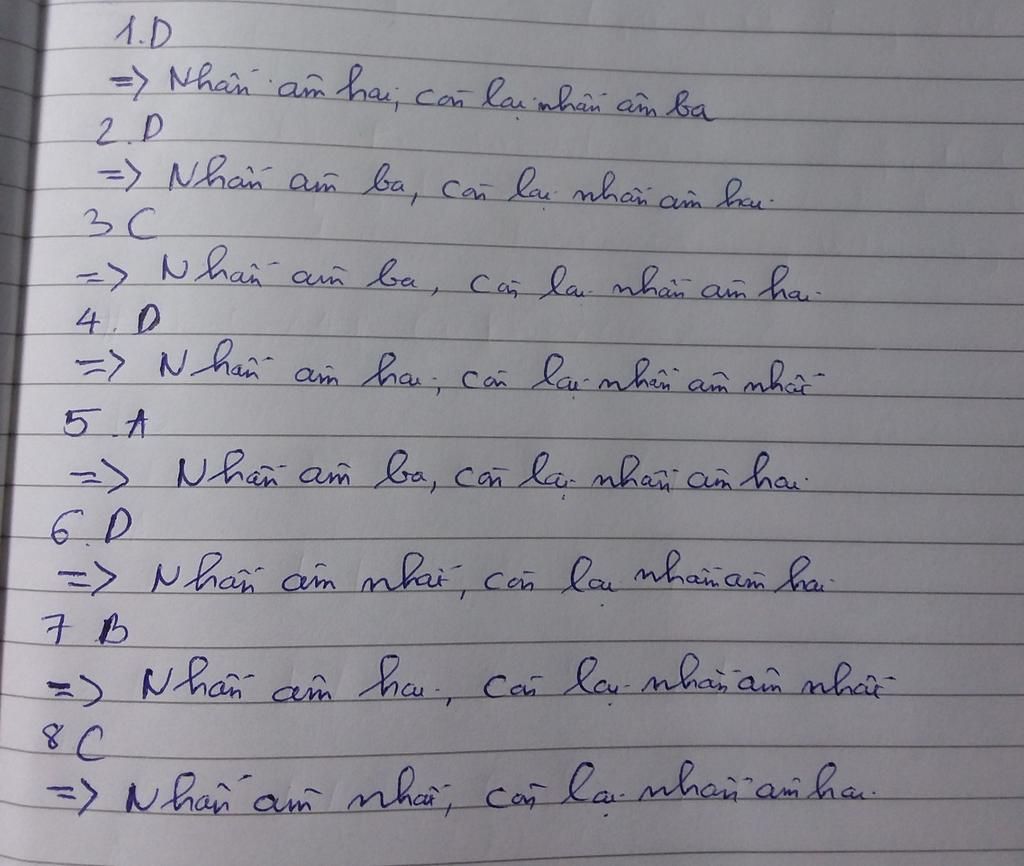 1.D
=> Nhấn âm hai, còn lại nhấn âm ba
2.D
=> Nhấn âm ba, còn lại nhấn âm hai.
3 C
=> Nhấn âm ba, còn lại nhấn âm hai.
4. D
=> Nhấn âm hai, còn lại nhấn âm nhất
5.A
=> Nhấn âm ba, còn lại nhấn âm hai.
6.D
=> Nhấn âm nhất, còn lại nhấn âm hai.
7 B
=> Nhấn âm hai, còn lại nhấn âm nhất
8 C
=> Nhấn âm nhất, còn lại nhấn âm hai.